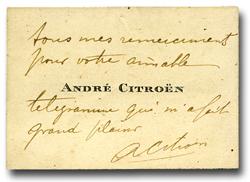 tous mes remerciements
pour votre aimable
ANDRÉ CITROËN
telegramme qui m'a fait
grand plaisir
ACitroën